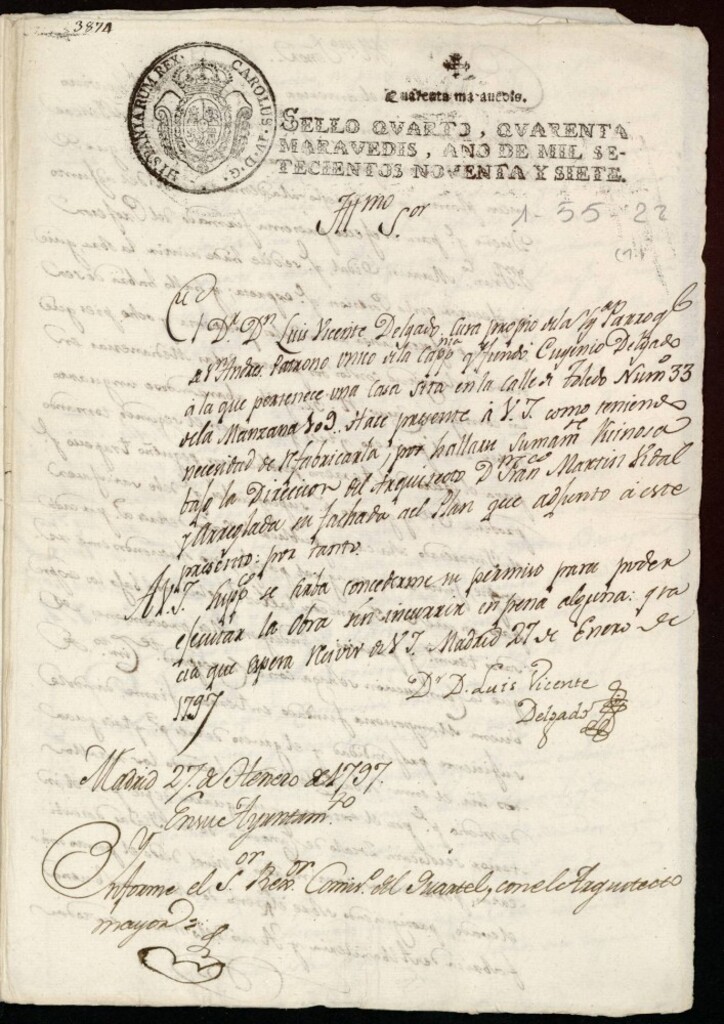 3874
HISPANIARUM REX. CAROLUS. IV. D. G.
Quarenta maravedis.
SELLO QVARTO, QVARENTA
MARAVEDIS, AÑO DE MIL SE-
TECIENTOS NOVENTA Y SIETE.
1-55-22
Yll.mo S.or
El Dr. Dn. Luis Vicente Delgado, Cura propio de la Parroq.l
de Sn. Andres, Patrono unico de la Cap.nia q.e fundó Eugenio Delgado
á la que pertenece una Casa sita en la calle de Toledo Num.o 33
de la Manzana 109. Hace presente á V.I. como teniendo
necesidad de Rfabricarla, por hallarse sumam.te Ruinosa
bajo la Direccion del Arquitecto Dn. Fran.co Martin Vidal
y Arreglada su fachada al Plan que adjunto á este
presento: por tanto.
A V.I. Supp.co se sirba concederme su permiso para poder
ejecutar la Obra sin incurrir en pena alguna: gra
cia que espera Recivir de V.I. Madrid 27 de Enero de
1797
Dr. D. Luis Vicente
Delgado
Madrid 27. de Henero de 1797.
En su Ayuntam.to
Ynforme el S.or Rex.or Comis.o del Quartel, con el Arquitecto
mayor